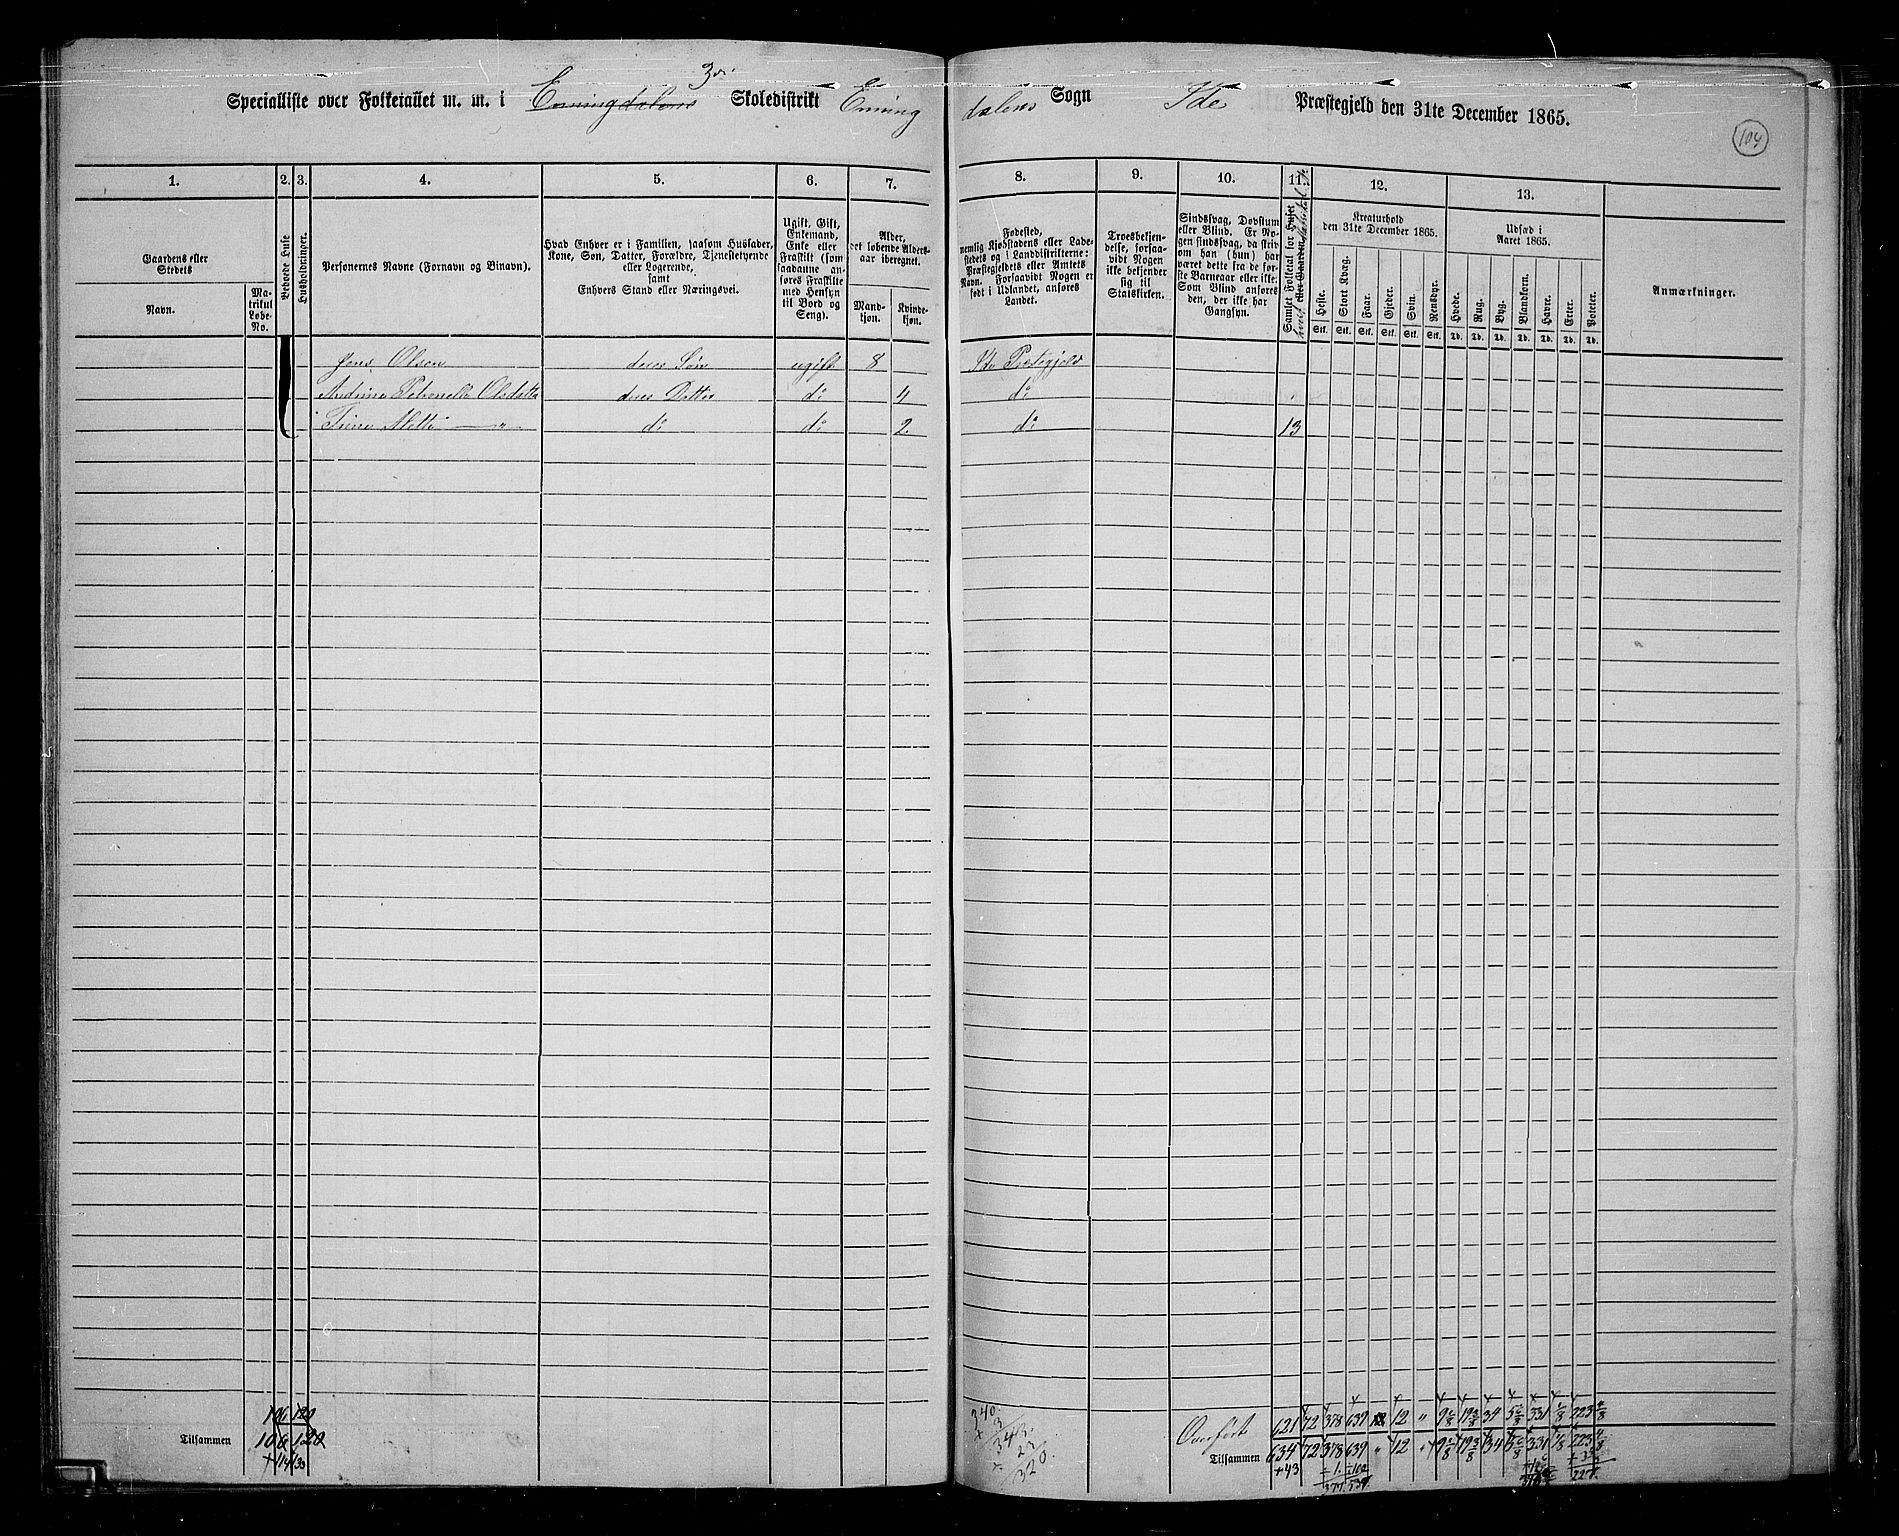 104
3die
Specialliste over Folketallet m. m. i Enningdalens Skoledistrikt Enningdalens Sogn Ide Præstegjeld den 31te December 1865.
1. 2. 3. 4. 5. 6. 7. 8. 9. 10. 11. 12. 13.
Gaardens eller Stedets
Navn.
Matrikul Løbe-No.
Beboede Huse
Husholdninger.
Personernes Navne (Fornavn og Binavn).
Hvad Enhver er i Familien, saasom Husfader, Kone, Søn, Datter, Forældre, Tjenestetyende eller Logerende,
samt
Enhvers Stand eller Næringsvei.
Ugift, Gift, Enkemand, Enke eller Fraskilt (som saadanne anføres Fraskilte med Hensyn til Bord og Seng).
Alder, det løbende Aldersaar iberegnet.
Mandkjøn.
Kvindekjøn.
Fødested, nemlig Kjøbstadens eller Ladestedets og i Landdistrikterne: Præstegjeldets eller Amtets Navn. Forsaavidt Nogen er født i Udlandet, anføres Landet.
Troesbekjendelse, forsaavidt Nogen ikke bekjender sig til Statskirken.
Sindssvag, Døvstum eller Blind. Er Nogen sindssvag, da skriv om han (hun) har været dette fra de første Barneaar eller ikke. Som Blind anføres den, der ikke har Gangsyn.
Samlet Folketal for Huset eller Gaarden
Kreaturhold den 31te December 1865.
Heste. Stort Kvæg. Faar. Gjeder. Svin. Rensdyr.
Stk. Stk. Stk. Stk. Stk. Stk.
Udsæd i Aaret 1865.
Hvede. Rug. Byg. Blandkorn. Havre. Erter. Poteter.
Td. Td. Td. Td. Td. Td. Td.
Anmærkninger.
Jens Olsen deres Søn ugift 8 Ide Prestegjeld
Andrine Petronelle Olsdatter deres Datter do 4 do
Trine Mette — " — do do 2 do 13
106 120
Overført 621 72 378 639 12 " 9 6/8 19 3/8 34 331 223 4/8
Tilsammen 106 120
Tilsammen 634 72 378 639 " 12 " 19 3/8 34 331 223 4/8
+43
340
3
343
23
320.